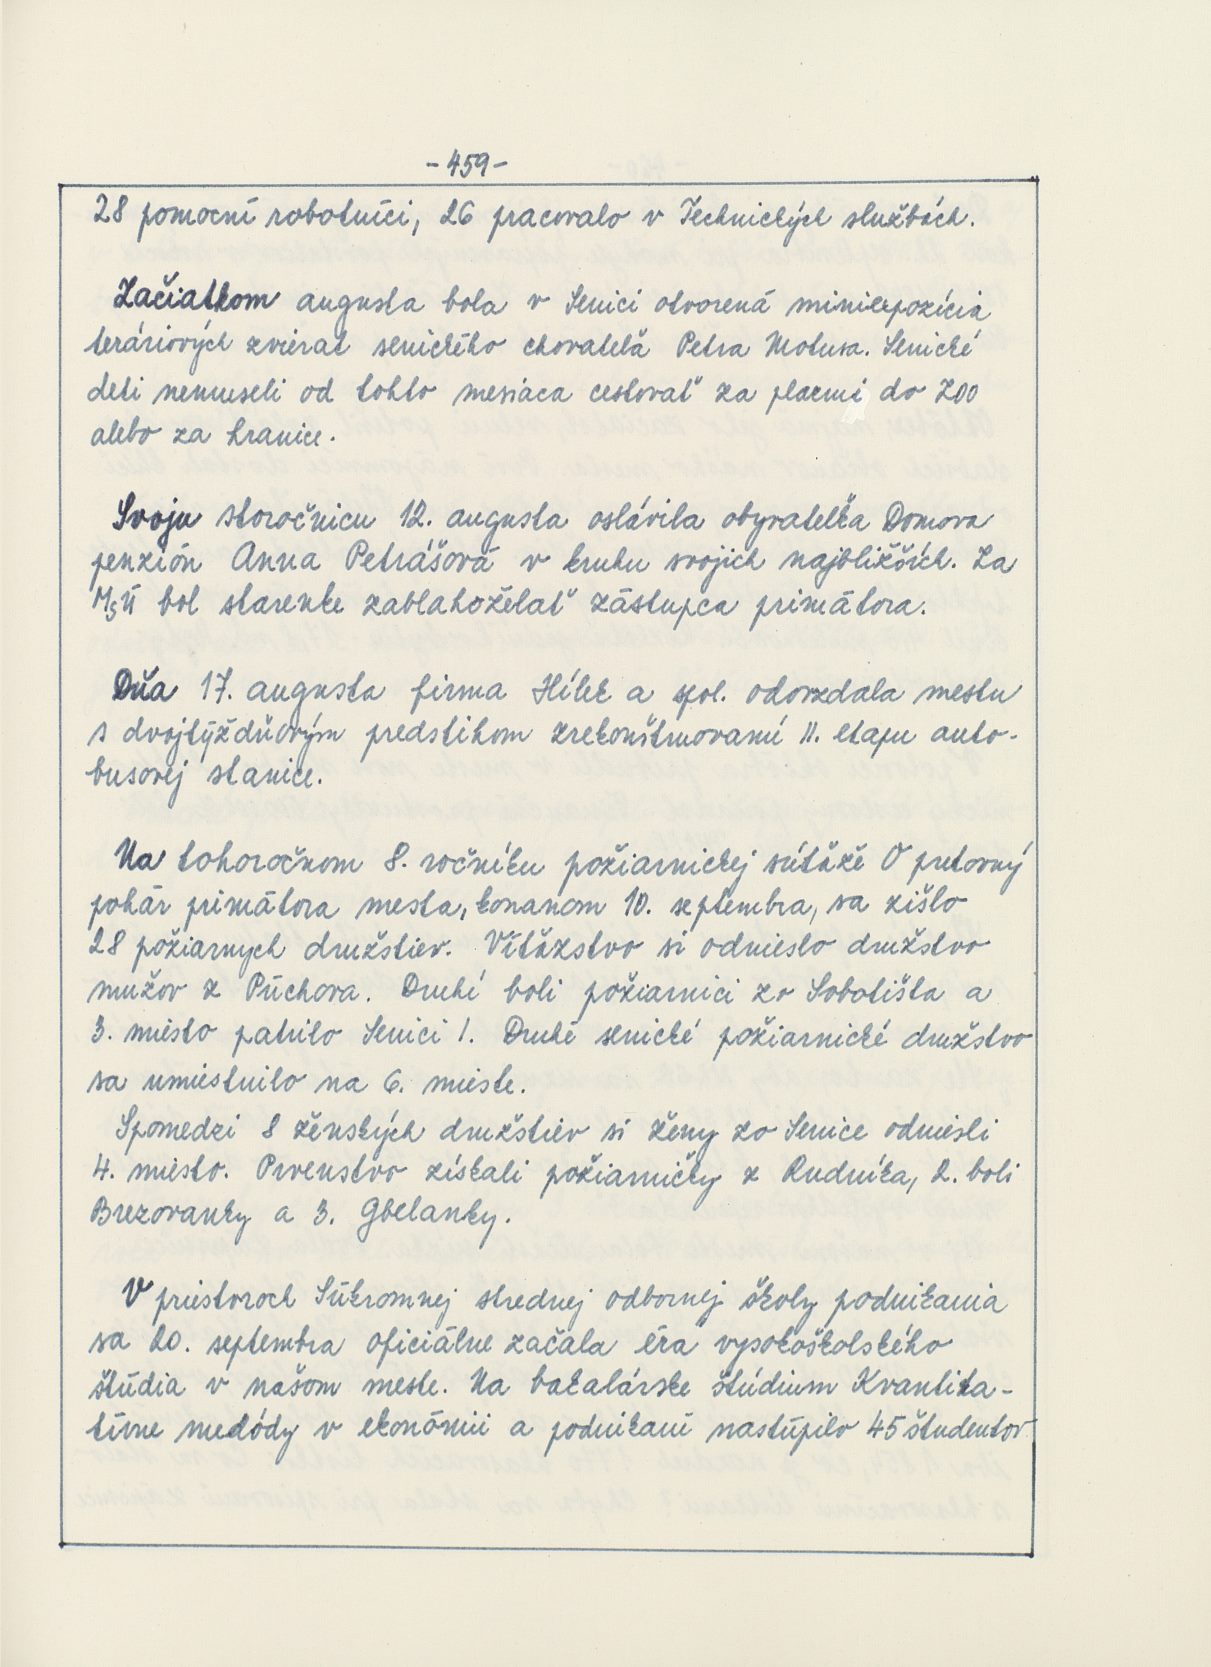 - 459 -
28 pomocní robotníci, 26 pracovalo v Technických službách.
Začiatkom augusta bola v Senici otvorená miniexpozícia
teráriových zvierat senického chovateľa Petra Motusa. Senické
deti nemuseli od tohto mesiaca cestovať za plazmi do ZOO
alebo za hranice.
Svoju storočnicu 12. augusta oslávila obyvateľka Domova
penzión Anna Petrášová v kruhu svojich najbližších. Za
MsÚ bol starenke zablahoželať zástupca primátora.
Dňa 17. augusta firma Hílek a spol. odovzdala mestu
s dvojtýždňovým predstihom zrekonštruovanú II. etapu auto-
busovej stanice.
Na tohoročnom 8. ročníku požiarnickej súťaže O putovný
pohár primátora mesta, konanom 10. septembra, sa zišlo
28 požiarnych družstiev. Víťazstvo si odnieslo družstvo
mužov z Púchova. Druhí boli požiarnici zo Sobotišťa a
3. miesto patrilo Senici 1. Druhé senické požiarnické družstvo
sa umiestnilo na 6. mieste.
Spomedzi 8 ženských družstiev si ženy zo Senice odniesli
4. miesto. Prvenstvo získali požiarničky z Rudníka, 2. boli
Brezovanky a 3. Gbelanky.
V priestoroch Súkromnej strednej odbornej školy podnikania
sa 20. septembra oficiálne začala éra vysokoškolského
štúdia v našom meste. Na bakalárske štúdium Kvantita-
tívne metódy v ekonómii a podnikaní nastúpilo 45 študentov